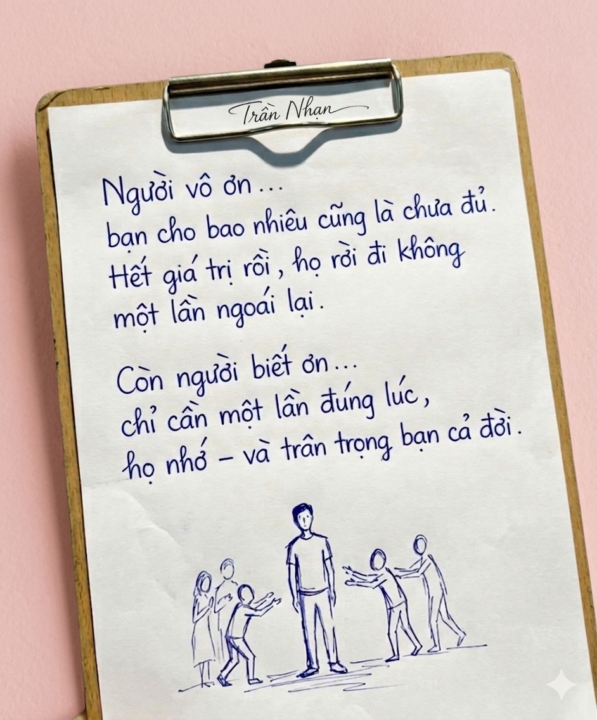 Trần Nhạn
Người vô ơn...
bạn cho bao nhiêu cũng là chưa đủ.
Hết giá trị rồi, họ rời đi không
một lần ngoái lại.
Còn người biết ơn...
chỉ cần một lần đúng lúc,
họ nhớ – và trân trọng bạn cả đời.